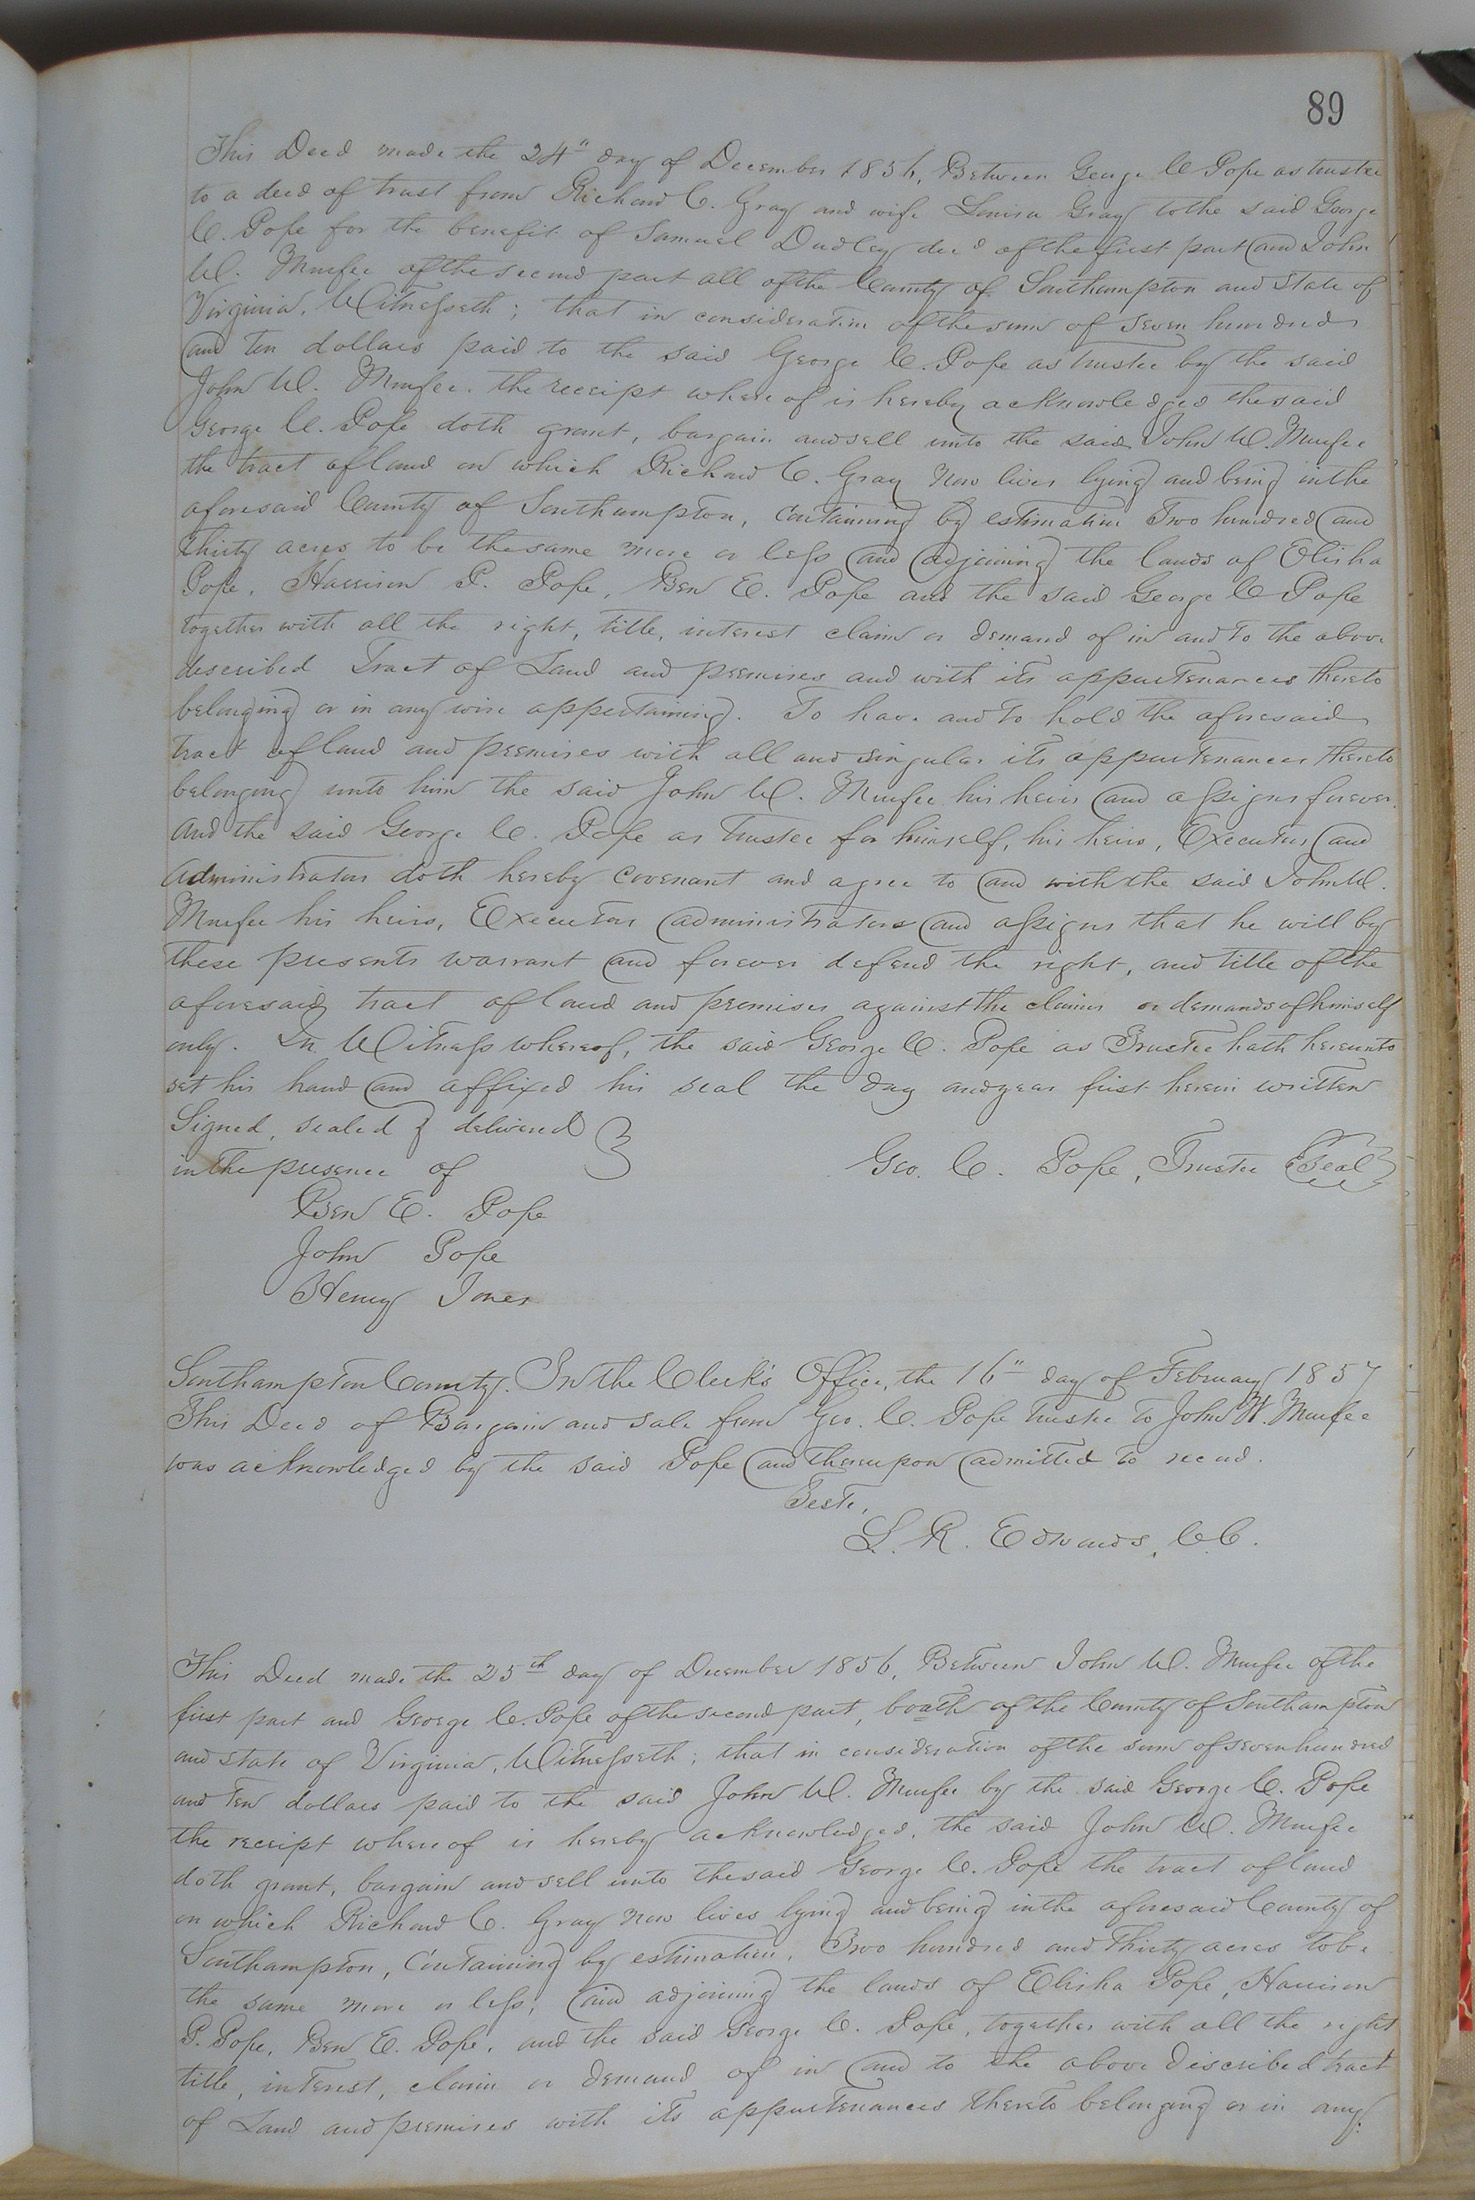 89
This Deed made the 24" day of December 1856, Between George C. Pope as trustee
to a deed of trust from Richard C. Gray and wife Louisa Gray to the said George
C. Pope for the benefit of Samuel Dudley decd of the first part and John
W. Murfee of the second part all of the County of Southampton and State of
Virginia, Witnesseth; that in consideration of the sum of seven hundred
and ten dollars paid to the said George C. Pope as trustee by the said
John W. Murfee, the receipt where of is hereby acknowledged the said
George C. Pope doth grant, bargain and sell unto the said John W. Murfee
the tract of land on which Richard C. Gray now lives lying and being in the
aforesaid County of Southampton, containing by estimation Two hundred and
thirty acres to be the same more or less and adjoining the lands of Elisha
Pope, Harrison P. Pope, Ben E. Pope and the said George C Pope
together with all the right, title, interest claim or demand of in and to the above
described Tract of Land and premises and with its appurtenances thereto
belonging or in any wise appertaining. To have and to hold the aforesaid
tract of land and premises with all and singular its appurtenances thereto
belonging unto him the said John W. Murfee his heirs and assigns forever.
And the said George C. Pope as Trustee for himself, his heirs, Executors and
Administrators doth hereby covenant and agree to and with the said John W.
Murfee his heirs, Executors administrators and assigns that he will by
these presents warrant and forever defend the right, and title of the
aforesaid tract of land and premises against the claims or demands of himself
only. In Witness whereof, the said George C. Pope as Trustee hath hereunto
set his hand and affixed his seal the day and year first herein written
Signed, sealed & delivered
in the presence of
Geo. C. Pope, Trustee Seal
Ben E. Pope
John Pope
Henry Jones
Southampton County. In the Clerk's Office, the 16" day of February 1857
This Deed of Bargain and sale from Geo. C. Pope trustee to John W. Murfee
was acknowledged by the said Pope and thereupon admitted to record.
Teste,
L. R. Edwards, C.C.
This Deed made the 25th day of December 1856, Between John W. Murfee of the
first part and George C. Pope of the second part, boath of the County of Southampton
and state of Virginia, Witnesseth; that in consideration of the sum of seven hundred
and ten dollars paid to the said John W. Murfee by the said George C. Pope
the receipt where of is hereby acknowledged, the said John W. Murfee
doth grant, bargain and sell unto the said George C. Pope the tract of land
on which Richard C. Gray now lives lying and being in the aforesaid County of
Southampton, Containing by estimation, Two hundred and thirty acres to be
the same more or less, and adjoining the lands of Elisha Pope, Harrison
P. Pope, Ben E. Pope, and the said George C. Pope, together with all the right
title, interest, claim or demand of in and to the above described tract
of Land and premises with its appurtenances thereto belonging or in any